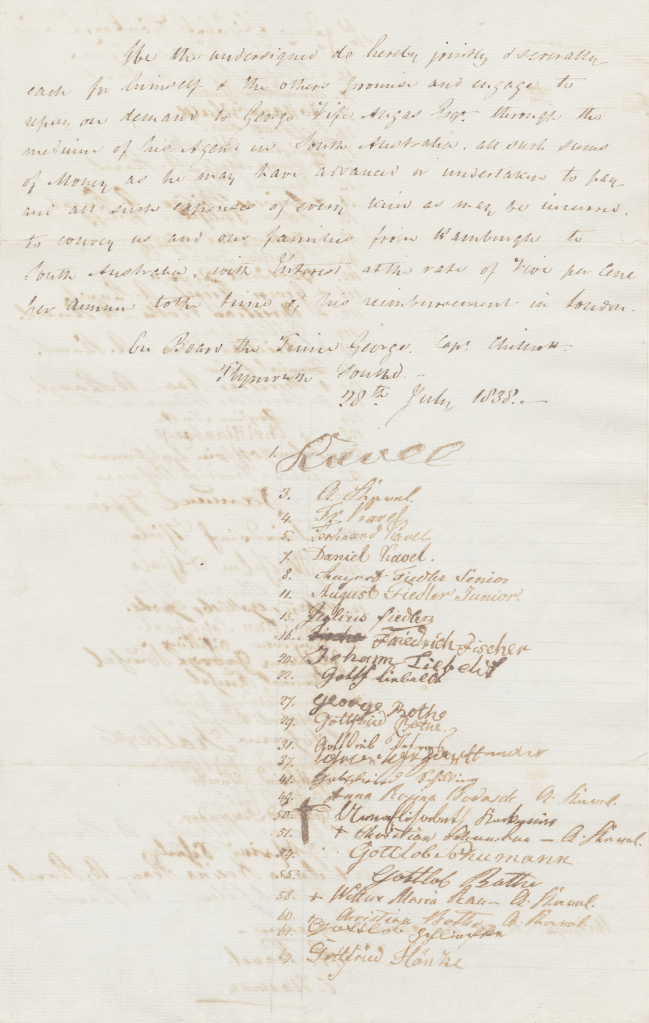 We the undersigned do hereby jointly & severally
each for himself & the others promise and engage to
repay on demand to George Fife Angas Esqr. through the
medium of his Agent in South Australia. all such sums
of Money as he may have advanced or undertaken to pay
and all such expenses of every kind as may be incurred.
to convey us and our families from Hamburgh to
South Australia, with Interest at the rate of Five per Cent
per Annum to the time of his reimbursement in London.
On Board the Prince George. Capt. Chilcott.
Plymouth Sound.
28th July 1838.
1. Kavel
3. A. Kavel.
4. Fr. Kavel
5. Ferdinand Kavel
7. Daniel Kavel.
8. August Fiedler Senior
11. August Fiedler Junior.
15. Julius Fiedler
16. Friedrich Fischer
20. Johann Liebelt
22. Gottf Liebelt
27. George Bothe
29. Gottfried Bothe
31. Gottlieb
37.
41. Schilling
49. Anna Rosina A. Kavel.
50.
51. + Christian A. Kavel.
54. Gottlob Schumann
55. Gottlob Bothe
58. + Wittwe Maria A. Kavel.
60. + Christian Bothe A. Kavel.
61.
67. Gottfried